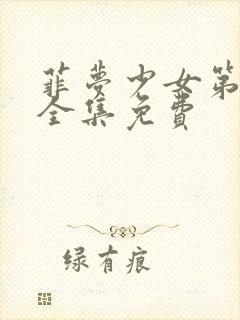 菲梦少女第
全集免费
绿有痕